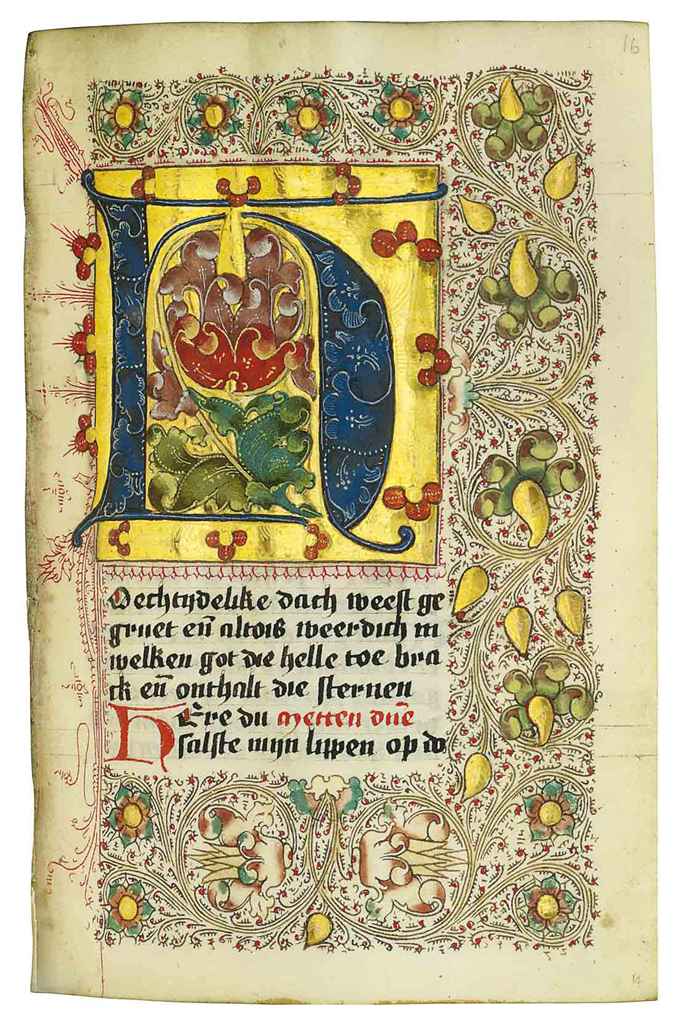 16
H
Oechtydelike dach weest ge
gruet en̄ altois weerdich in
welken got die helle toe bra
ck en̄ onthalt die sternen
HEre du metten
salste mijn lippen op do